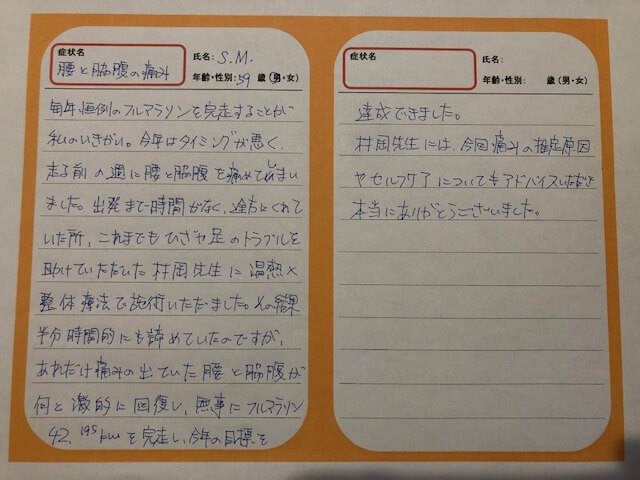 症状名
腰と脇腹の痛み
氏名：S.M.
年齢・性別：59 歳（男・女）
毎年恒例のフルマラソンを完走することが
私のいきがい。今年はタイミングが悪く、
走る前の週に腰と脇腹を痛めてしまい
ました。出発まで時間がなく、途方にくれて
いた所、これまでもひざや足のトラブルを
助けていただいた村岡先生に温熱×
整体療法で施術いただました。その結果
半分時間的にも諦めていたのですが、
あれだけ痛みの出ていた腰と脇腹が
何と激的に回復し、無事にフルマラソン
42.195kmを完走し、今年の目標を
症状名
氏名：
年齢・性別： 歳（男・女）
達成できました。
村岡先生には、今回痛みの推定原因
やセルフケアについてもアドバイスいただき
本当にありがとうございました。